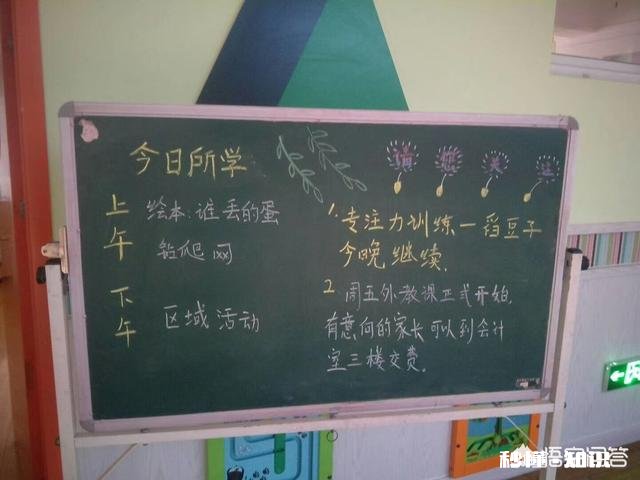 今日所学
上午
绘本：谁丢的蛋
钻爬网
下午
区域活动
请您关注
1. 专注力训练—舀豆子
今晚继续.
2 周五外教课正式开始.
有意向的家长可以到会计
室三楼交费.
悟空问答